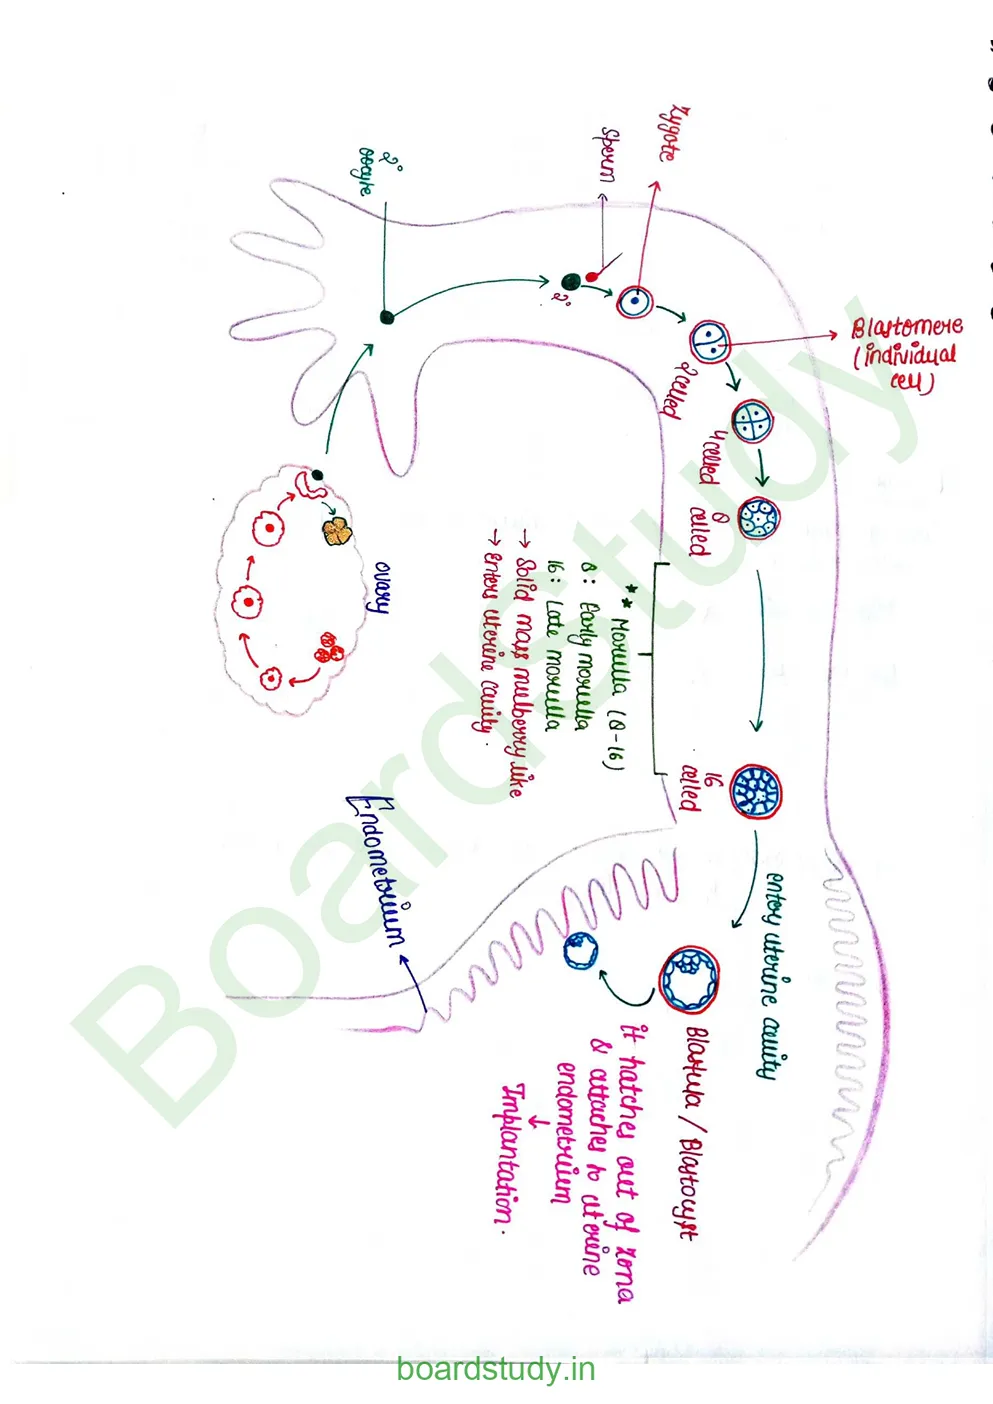 2°
oocyte
Sperm
Zygote
2°
Blastomere
(individual
cell)
2celled
4celled
8
celled
** Morulla (8-16)
8: Early morulla
16: Late morulla
→ Solid mass mulberry like
→ Enters uterine cavity.
16
celled
ovary
entry uterine cavity
Endometrium
Blastula / Blastocyst
it hatches out of zona
& attaches to uterine
endometrium
↓
Implantation.
Boardstudy
boardstudy.in